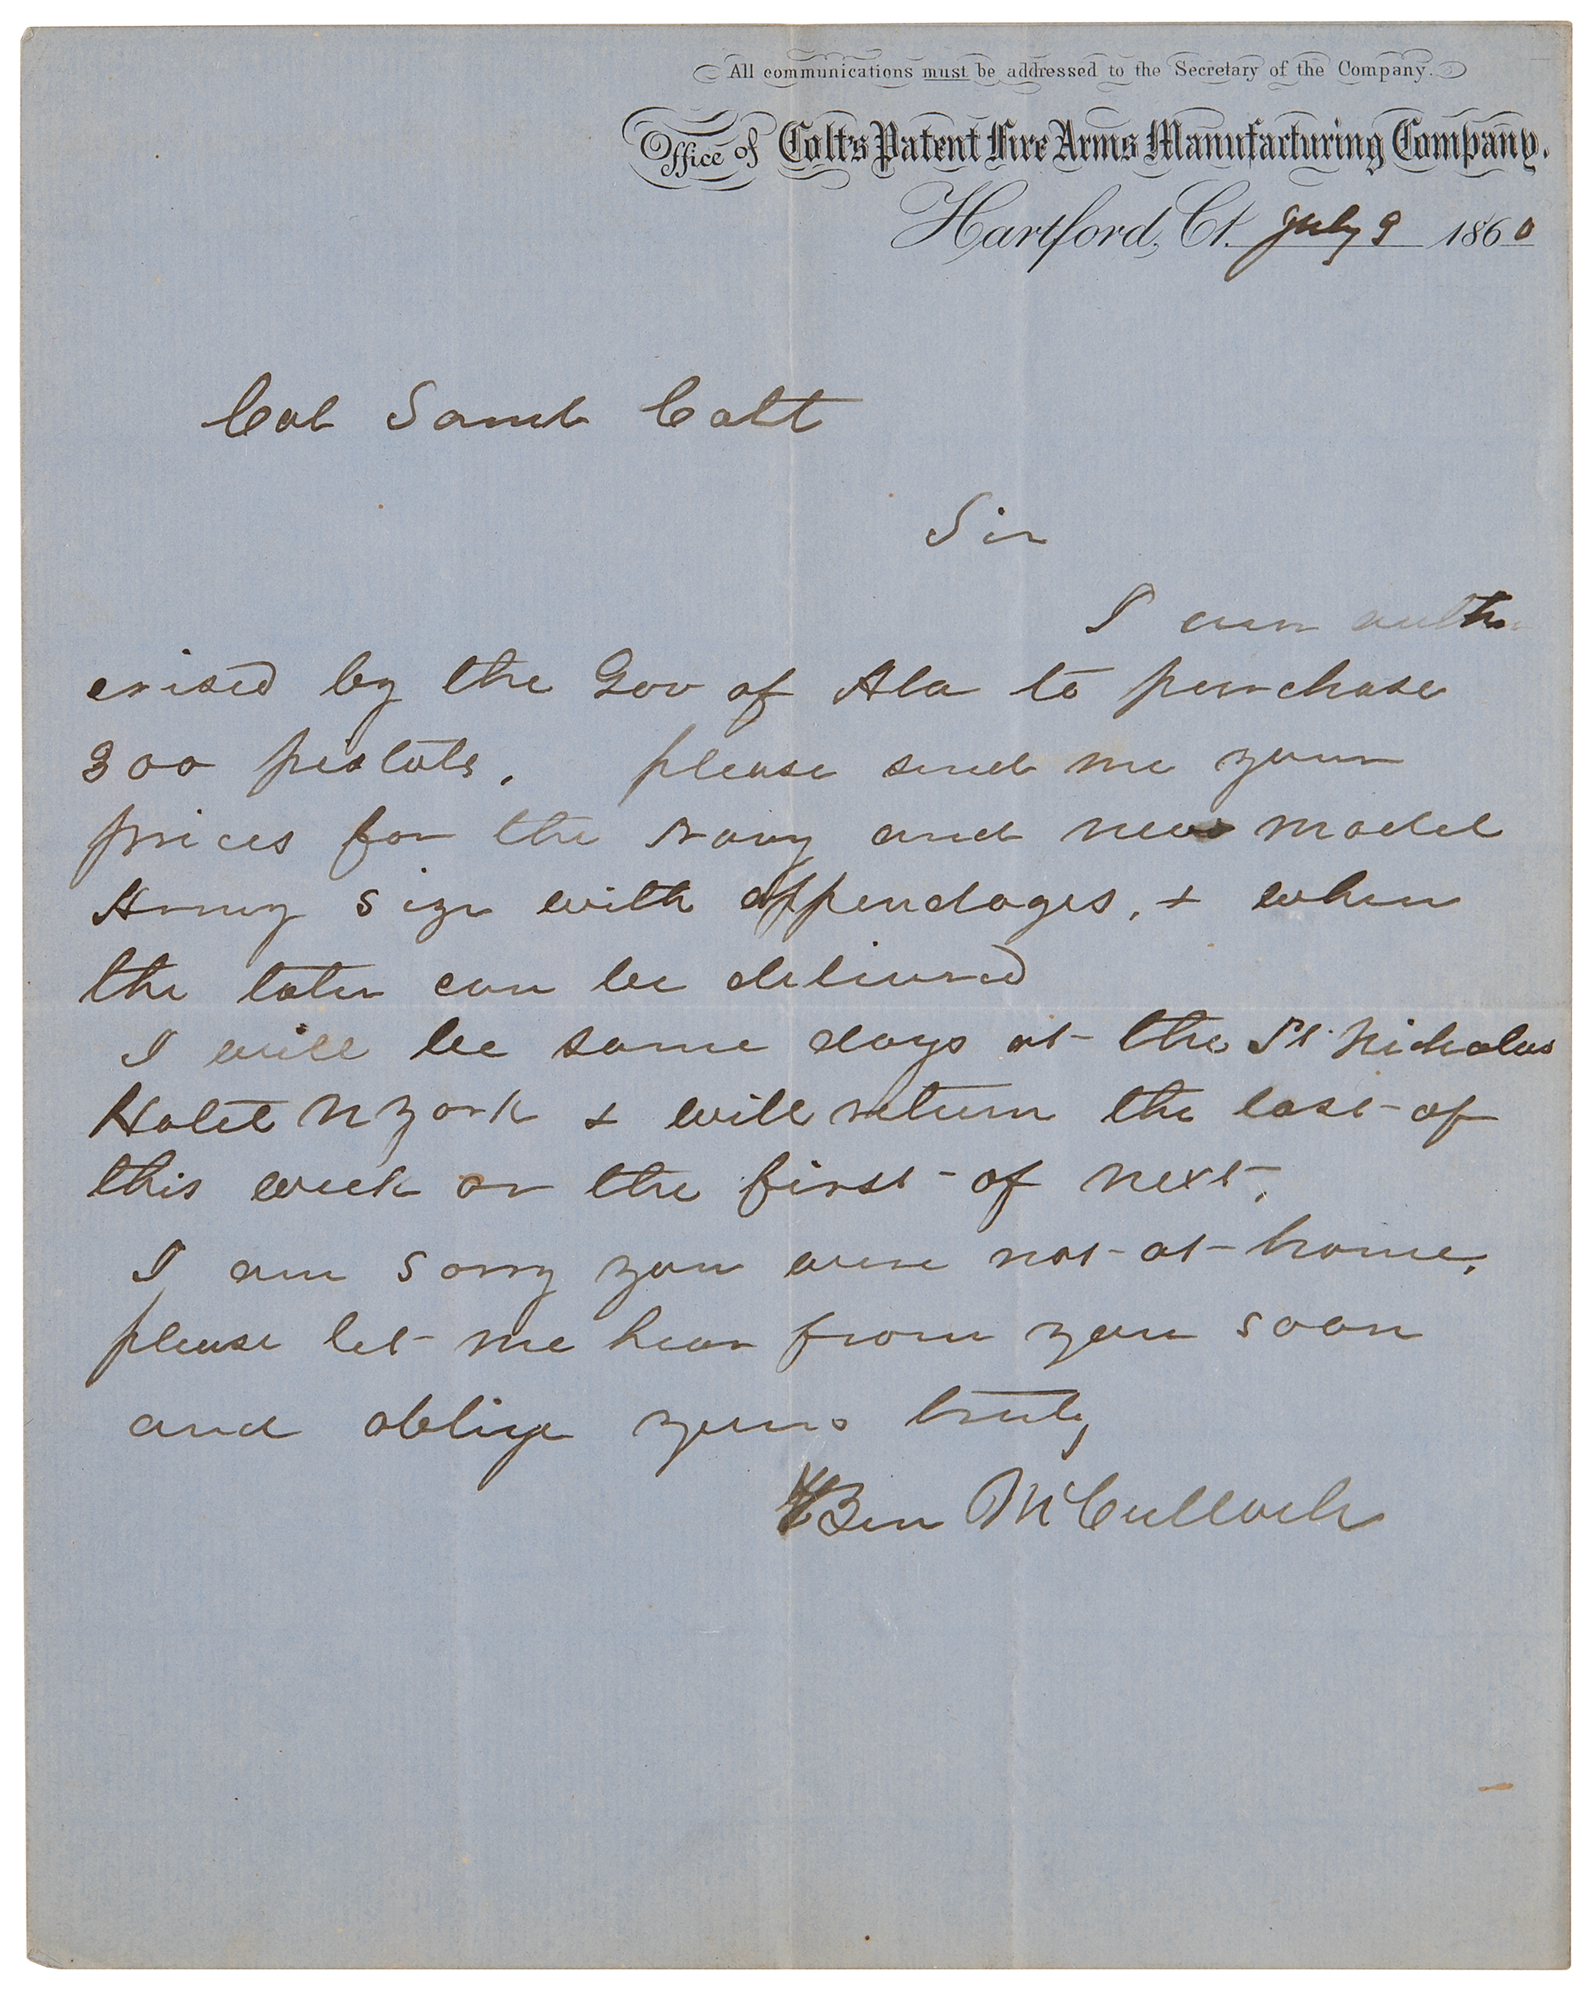 All communications must be addressed to the Secretary of the Company.
Office of Colt's Patent Fire Arms Manufacturing Company.
Hartford, Ct. July 9 1860
Col Saml Colt
Sir
I am autho
erised by the Gov of Ala to purchase
300 pistols. please send me your
prices for the Navy and new model
Army size with appendages, & when
the later can be delivered
I will be some days at the St. Nicholas
Hotel N York & will return the last of
this week or the first of next.
I am sorry you were not at home.
please let me hear from you soon
and oblige yours truly
Ben McCulloch